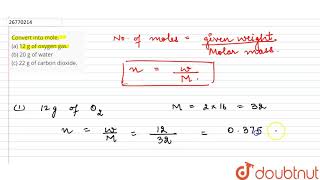 26770214
Convert into mole.
(a) 12 g of oxygen gas.
(b) 20 g of water
(c) 22 g of carbon dioxide.
No. of moles = given weight.
Molar mass.
n = w
M.
(1) 12 g of O2 M = 2 × 16 = 32
n = w/M = 12/32 = 0.375
doubtnut